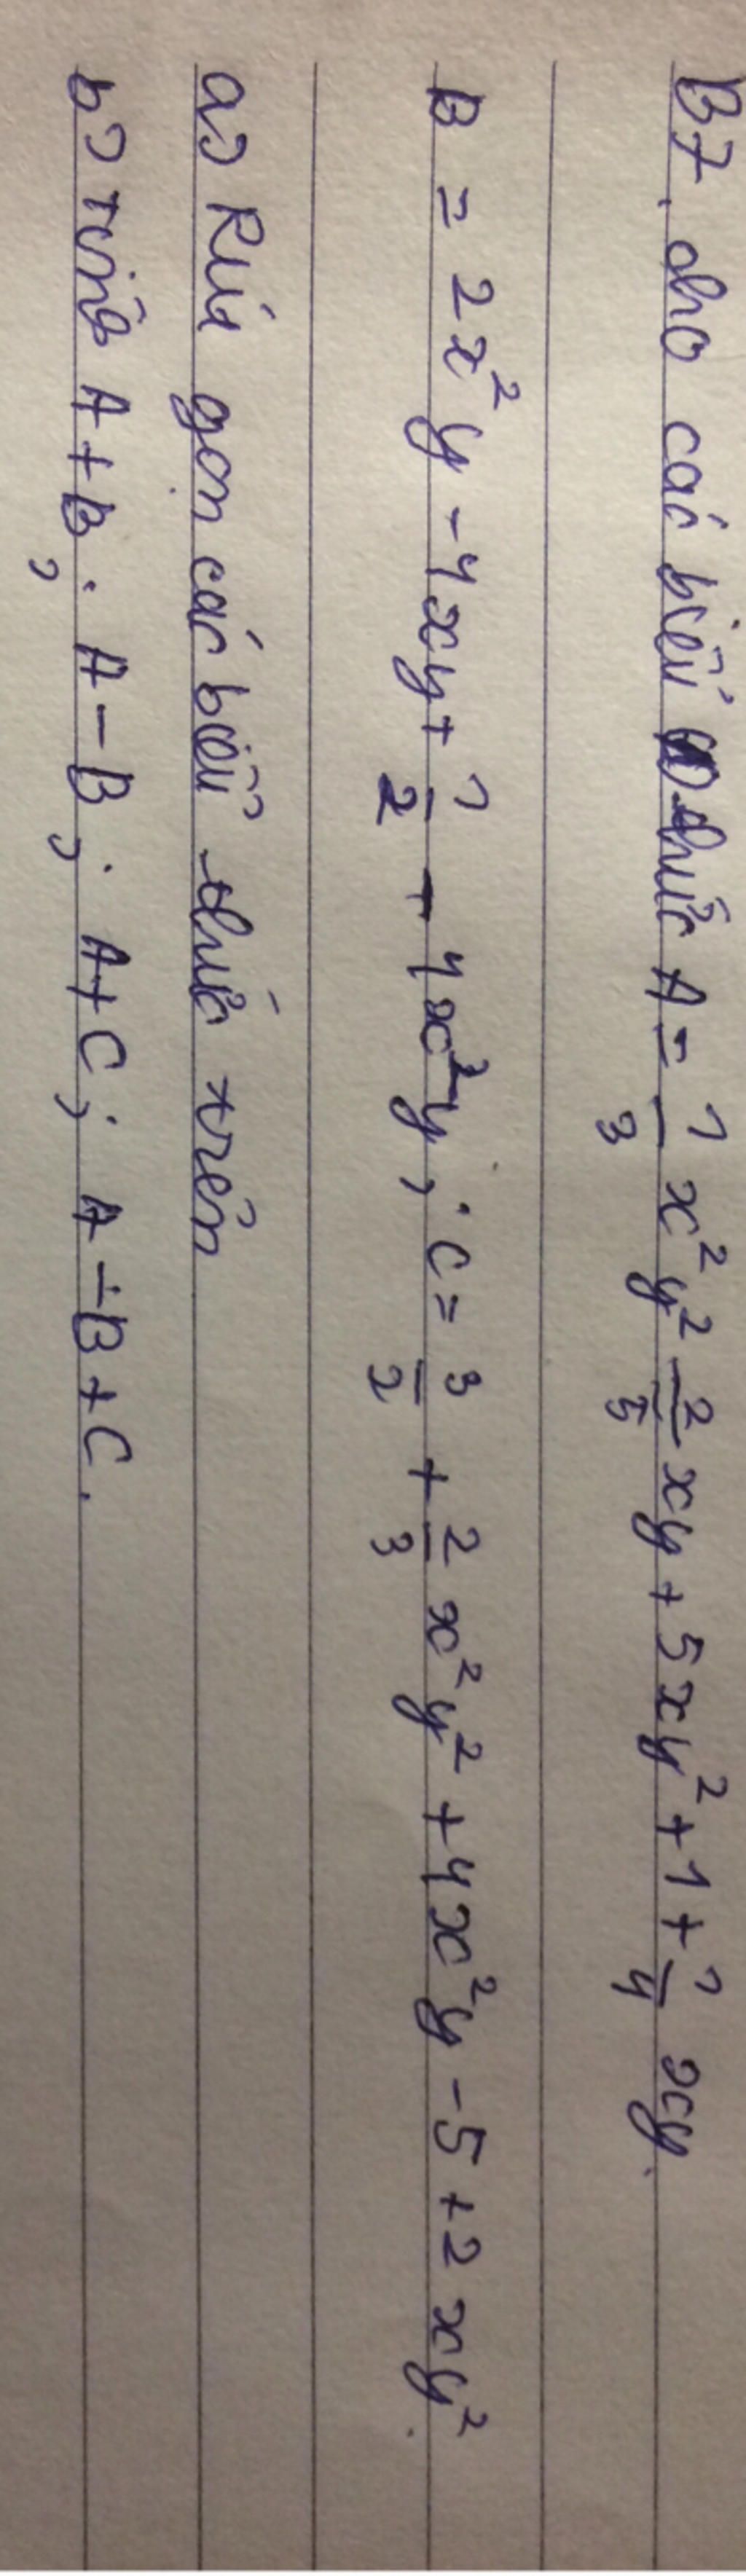 B7. cho các biểu thức A = 1/3 x² y² - 2/5 xy + 5xy² + 1 + 1/4 xy.
B = 2x² y - 4xy + 1/2 - 4x² y ; C = 3/2 + 2/3 x² y² + 4x² y - 5 + 2 xy².
a) Rút gọn các biểu thức trên
b) Tính A + B ; A - B ; A + C ; A - B + C.